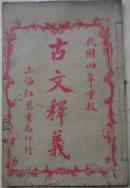 民國四年重校
古文釋義
上海紅裳書局印行